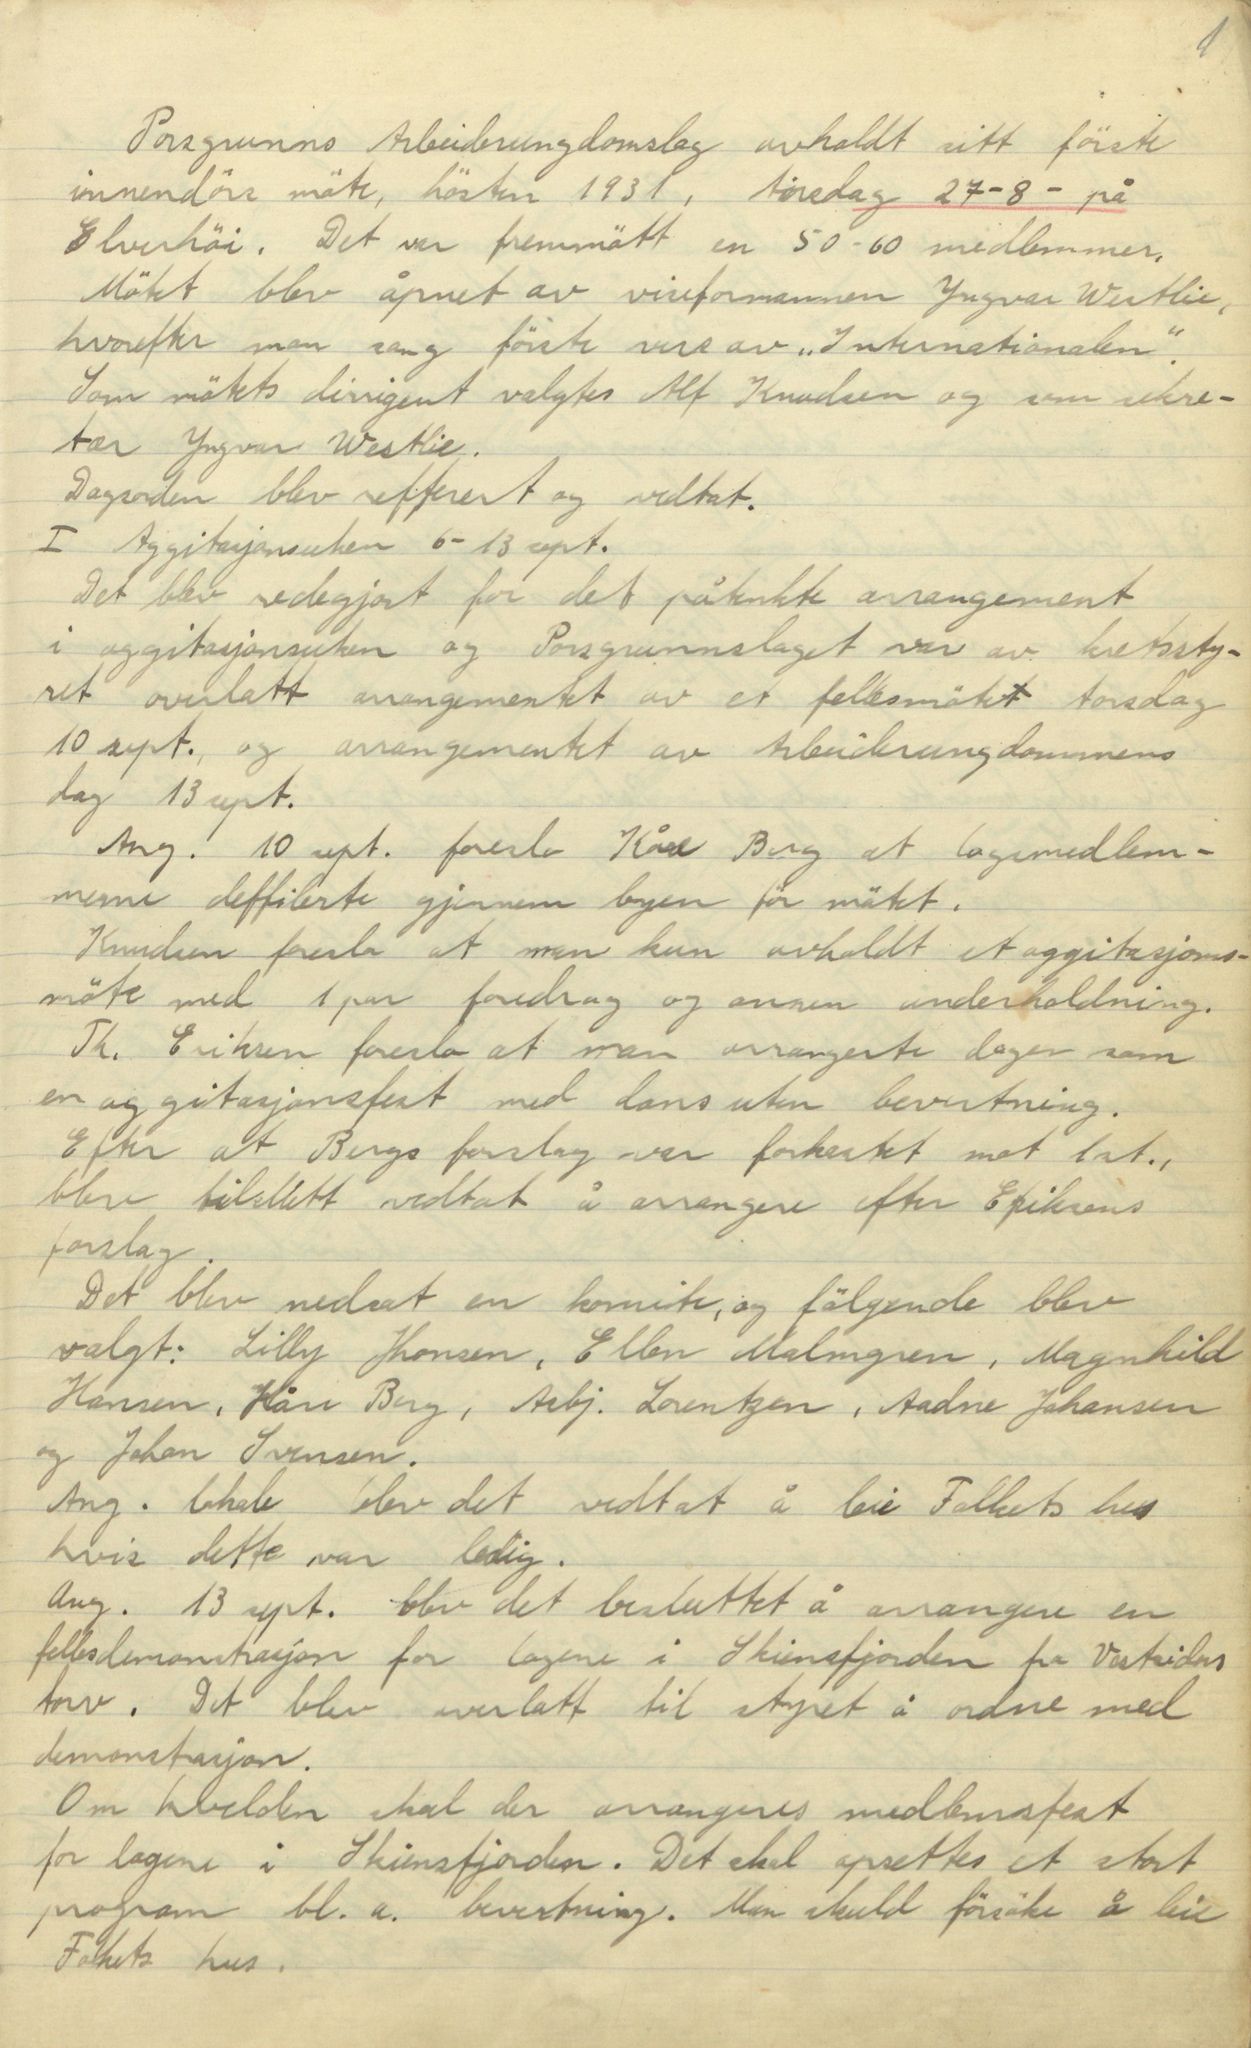 1
Porsgrunns Arbeiderungdomslag avholdt sitt förste
innendörs möte, hösten 1931, torsdag 27-8- på
Elverhöi. Det var fremmött en 50-60 medlemmer.
Mötet blev åpnet av viseformannen Yngvar Westlie,
hvorefter man sang förste vers av „Internationalen“.
Som mötets dirrigent valgtes Alf Knudsen og som sekre-
tær Yngvar Westlie.
Dagsorden blev refferert og vedtat.
I Aggitasjonsuken 6-13 sept.
Det blev redegjort for det påtenkte arrangement
i aggitasjonsuken og Porsgrunnslaget var av kretssty-
ret overlatt arrangementet av et fellesmötet torsdag
10 sept., og arrangementet av Arbeiderungdommens
dag 13 sept.
Ang. 10 sept. foreslo Kåre Berg at lagsmedlem-
merne deffilerte gjennem byen för mötet.
Knudsen foreslo at man kun avholdt et aggitasjons-
möte med 1 par foredrag og annen underholdning.
Th. Eriksen foreslo at man arrangerte dagen som
en aggitasjonsfest med dans uten bevertning.
Efter at Bergs forslag var forkastet mot 1 st.,
blev tilslutt vedtat å arrangere efter Eriksens
forslag.
Det blev nedsat en komite, og fölgende blev
valgt: Lilly Jhonsen, Ellen Malmgren, Magnhild
Hansen, Kåre Berg, Asbj. Lorentzen, Aadne Johansen
og Johan Svensen.
Ang. lokale blev det vedtat å leie Folkets hus
hvis dette var ledig.
Ang. 13 sept. blev det besluttet å arrangere en
fellesdemonstrasjon for lagene i Skiensfjorden fra Vestsidens
torv. Det blev overlatt til styret å ordne med
demonstrasjon.
Om kvelden skal der arrangeres medlemsfest
for lagene i Skiensfjorden. Det skal opsettes et stort
program bl. a. bevertning. Man skuld försöke å leie
Fokets hus.